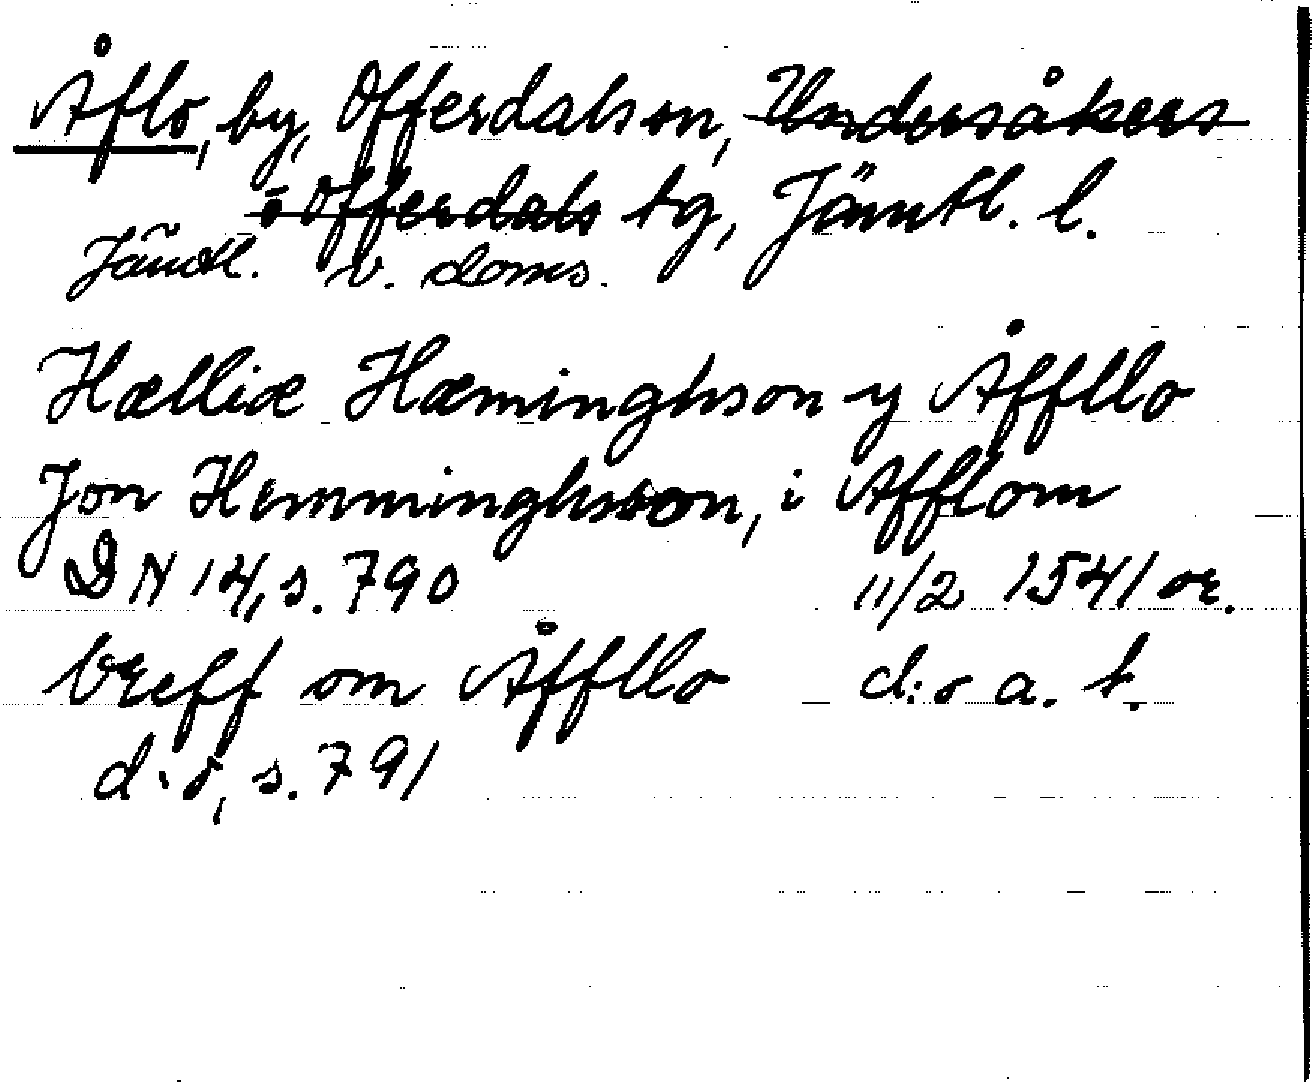 Åflo, by, Offerdals sn, Undersåkers
o Offerdals tg, Jämtl. l.
Jämtl. v. doms.
Hællia Hæminghson y Åffllo
Jon Hemminghsson, i Afflom
DN 14, s. 790 11/2 1541 or.
breff om Åffllo d:o a. t.
d:o, s. 791